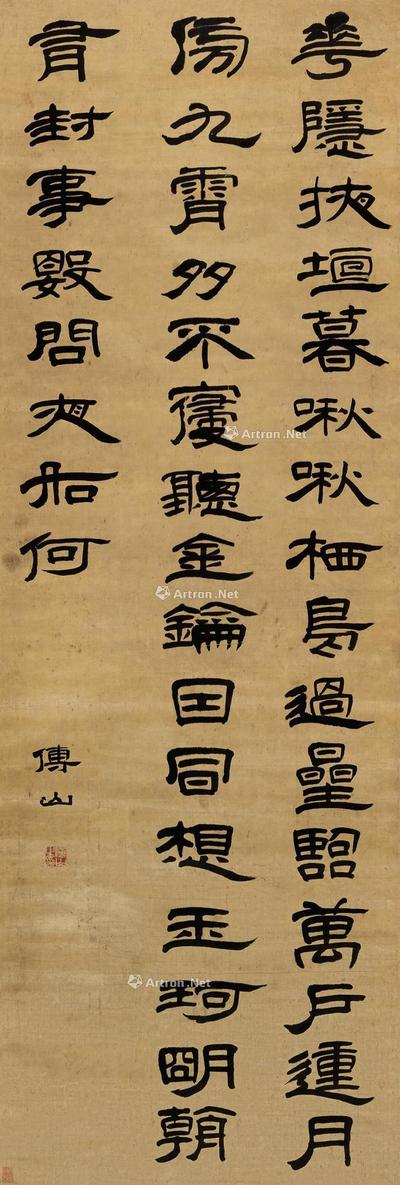 華隱掖垣暮啾啾栖鳥過星臨萬戶動月
傍九霄多不寢聽金鑰因風想玉珂明朝
有封事數問夜如何
傅山
Artron.Net
Artron.Net
Artron.Net